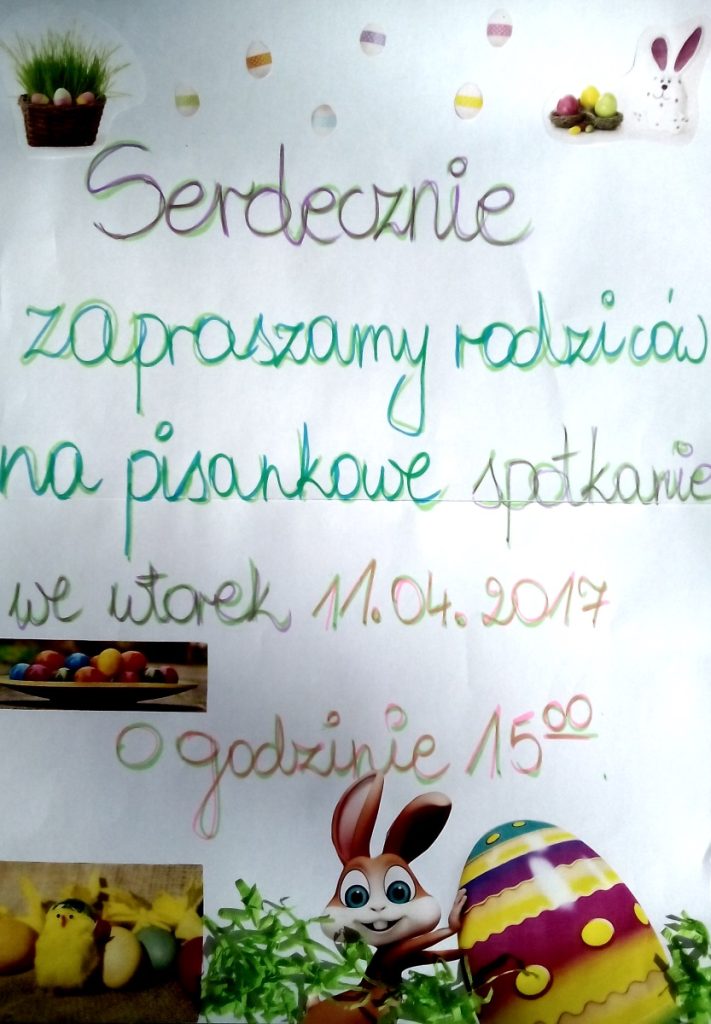 Serdecznie
zapraszamy rodziców
na pisankowe spotkanie
we wtorek 11.04.2017
o godzinie 15⁰⁰.